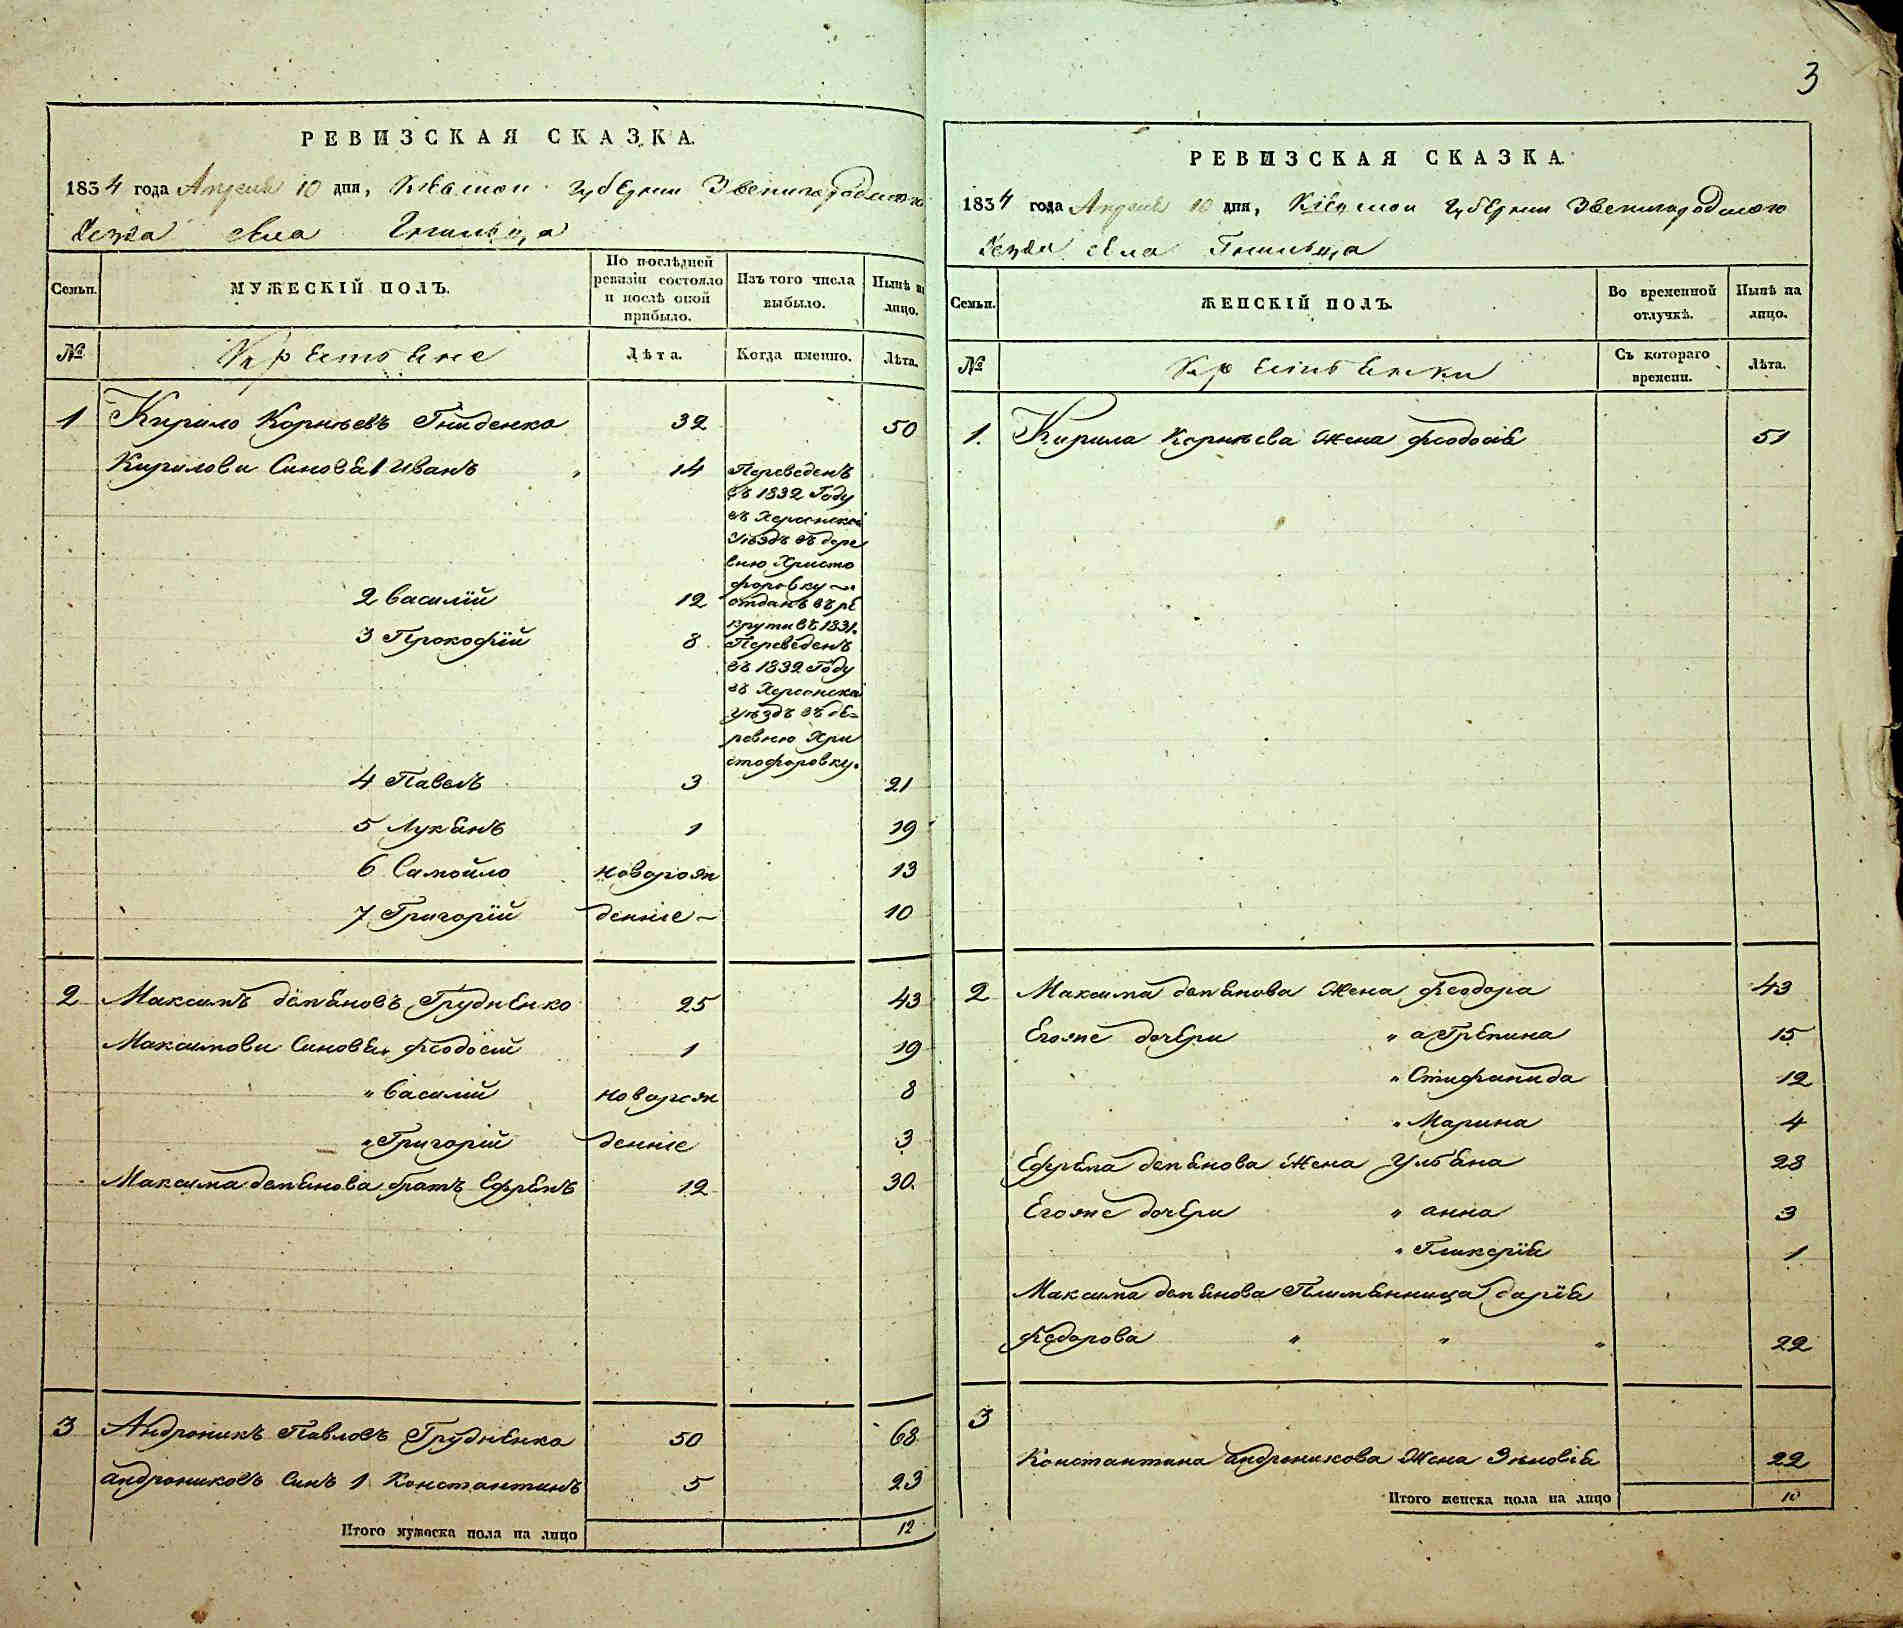 РЕВИЗСКАЯ СКАЗКА.
1834 года Апреля 10 дня, Кіевской губернии Звенигородского
Уезда села Гнильца
Семьи.
МУЖЕСКІЙ ПОЛЪ.
По послѣдней ревизіи состояло и послѣ оной прибыло.
Изъ того числа выбыло.
Нынѣ на лицо.
№
Крестьяне
Лѣта.
Когда именно.
Лѣта.
1 Кирило Корнѣевъ Гниденко 32 50
Кирилови Синовья 1 Иванъ 14 Переведенъ
въ 1832 Году
въ Херсонской
Уѣздъ въ дере
вню Христо
форовку
2 Василій 12 отданъ въ ре
крути въ 1831.
3 Прокофій 8 Переведенъ
въ 1832 Году
въ Херсонской
Уѣздъ въ де-
ревню Хри
стофоровку.
4 Павелъ 3 21
5 Лукянъ 1 19
6 Самойло новорож 13
7 Григорій денніе 10
2 Максимъ Демяновъ Грудненко 25 43
Максимови Синовья Феодосій 1 19
" Василій новорож 8
" Григорій денніе 3
Максима Демянова братъ Ефремъ 12 30.
3 Андроникъ Павловъ Грудненко 50 68
Андрониковъ Синъ 1 Константинъ 5 23
Итого мужеска пола на лицо 12
3
РЕВИЗСКАЯ СКАЗКА.
1834 года Апреля 10 дня, Кіевской губернии Звенигородского
Уезда села Гнильца
Семьи.
ЖЕНСКІЙ ПОЛЪ.
Во временной отлучкѣ.
Нынѣ на лицо.
№
Крестьянки
Съ котораго времени.
Лѣта.
1. Кирила Корнѣева жена Феодосія 51
2 Максима Демянова жена Феодора 43
Егоже дочери " агрепина 15
" Стифанида 12
" Марина 4
Ефрема Демянова жена Ульяна 23
Егоже дочери " анна 3
" Гликерія 1
Максима Демянова Племянница Дарія
Федорова " " " 22
3
Константина андроникова жена Зѣновія 22
Итого женска пола на лицо 10